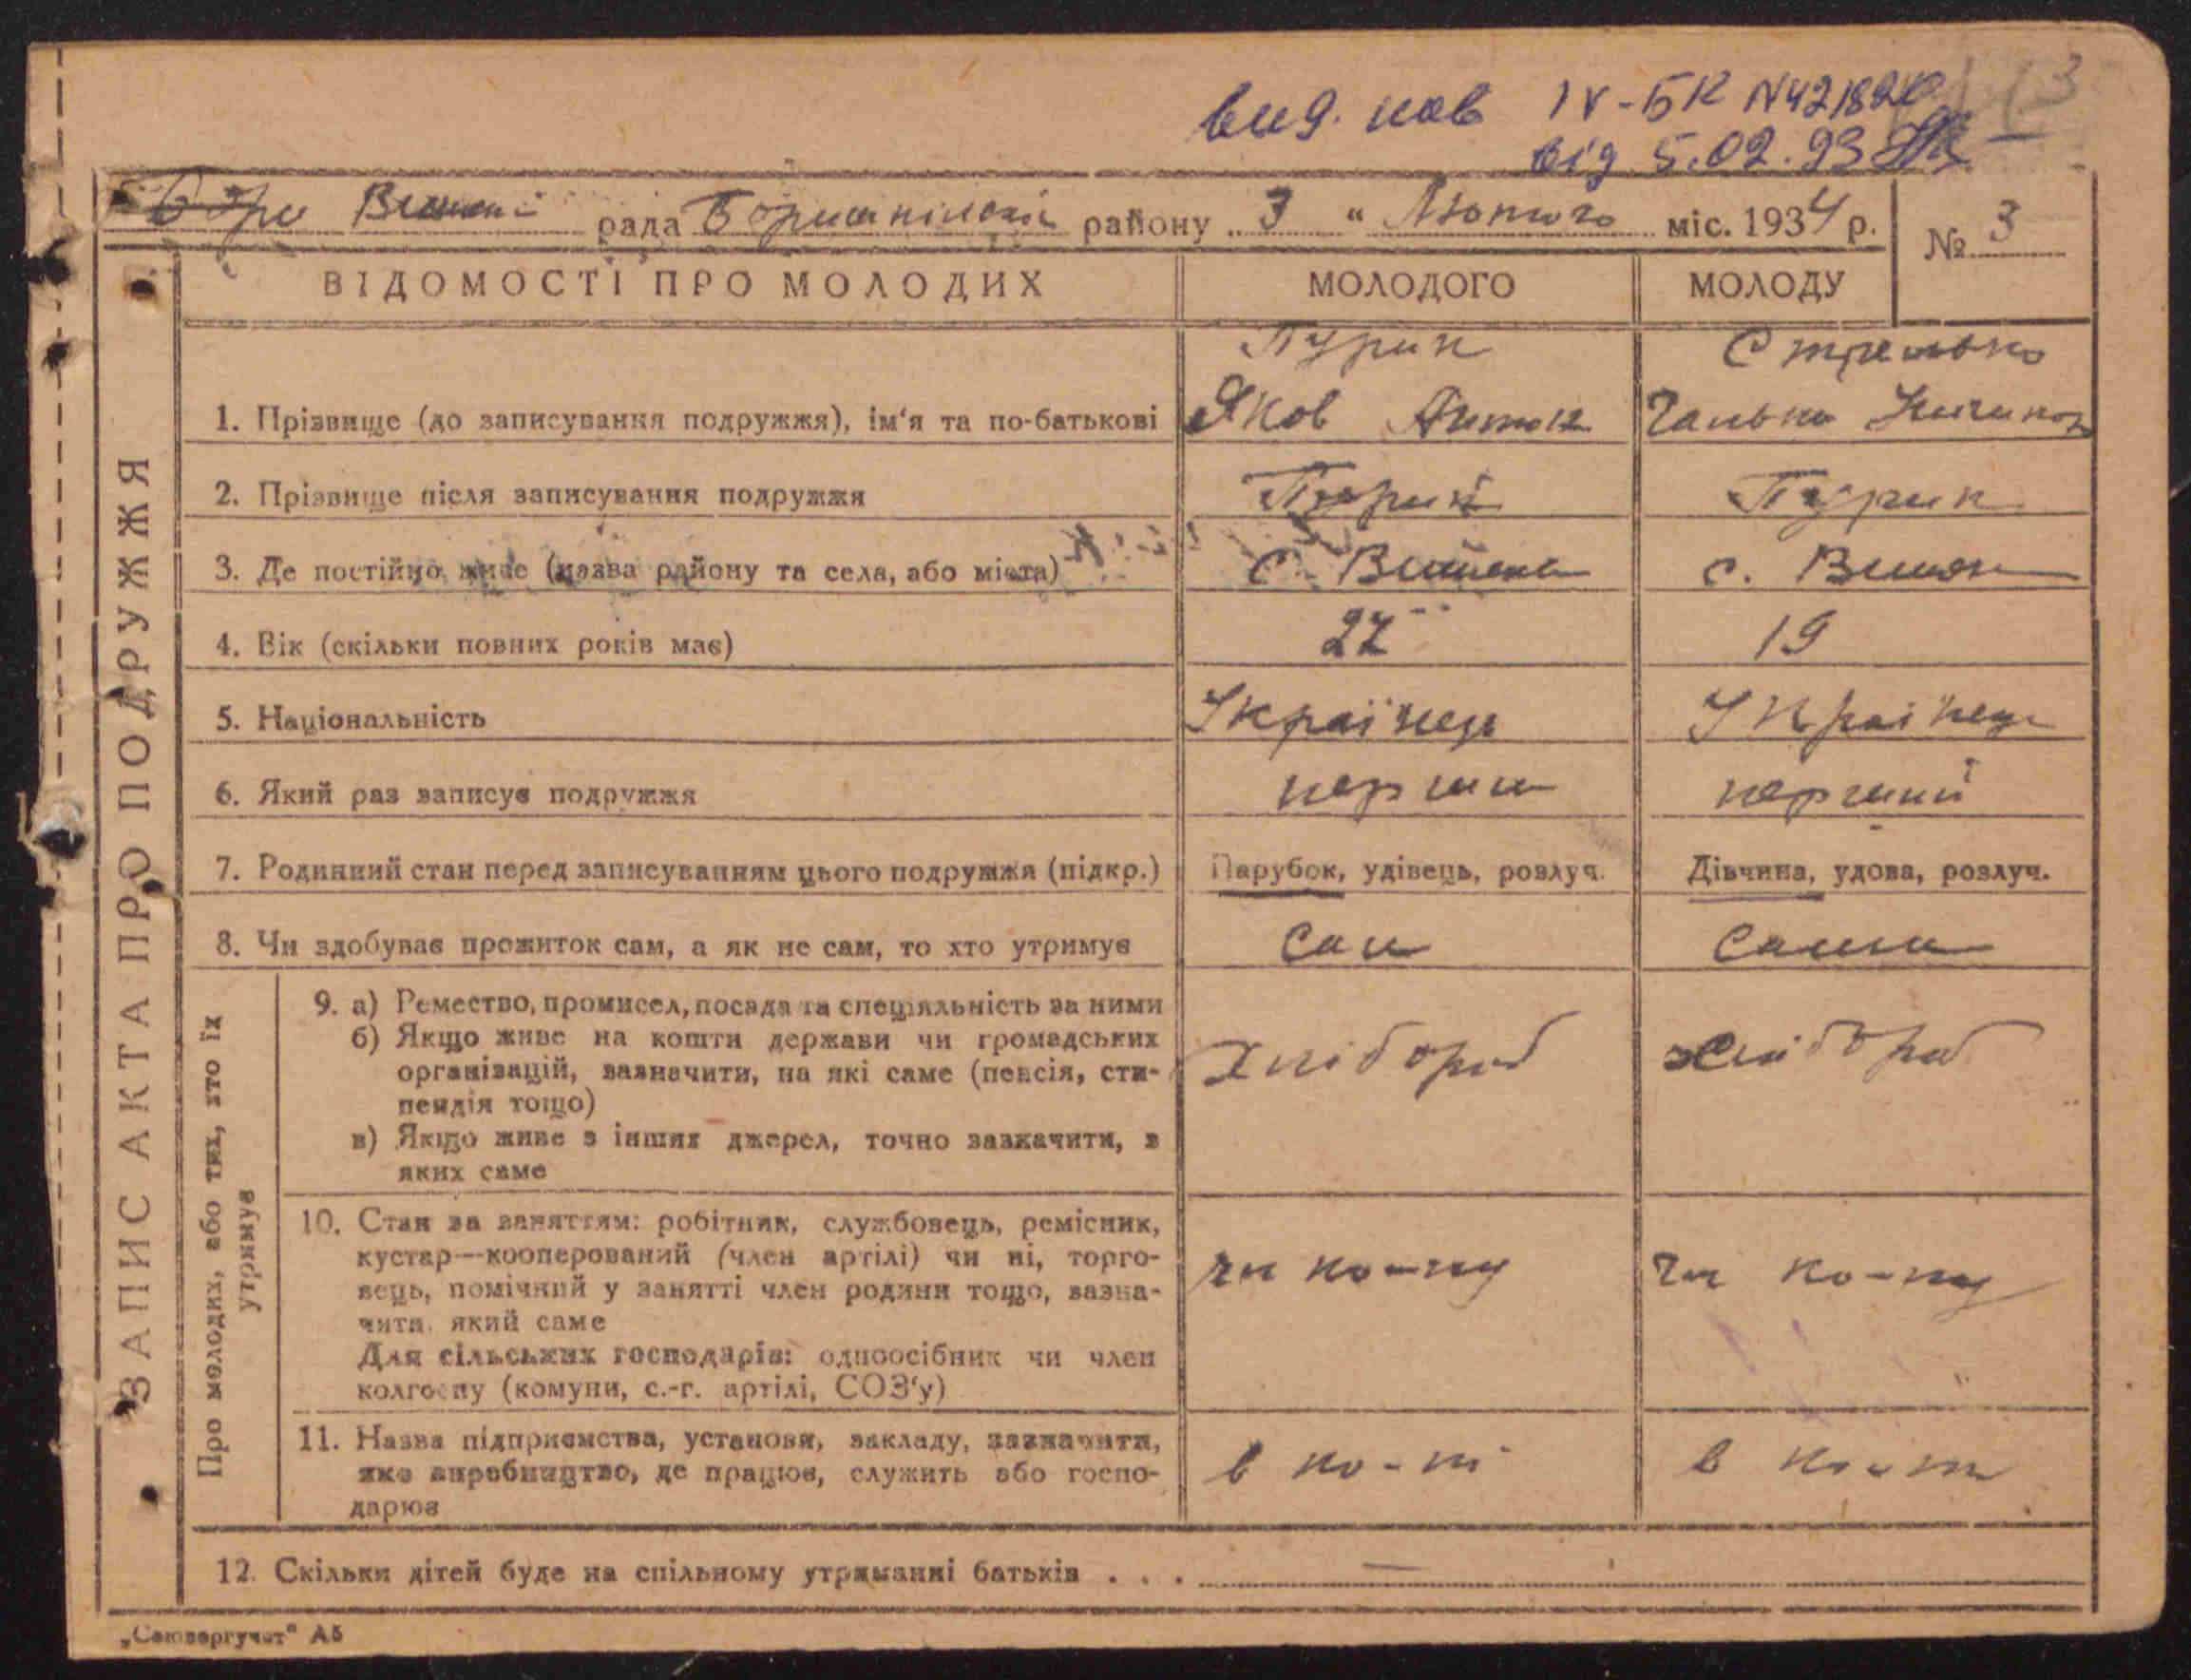 вид. нов IV-БК №42182
від 5.02.93
рада Бориспільскій району „ 3 “ Лютого міс. 1934 р.
№ 3
ВІДОМОСТІ ПРО МОЛОДИХ МОЛОДОГО МОЛОДУ
ЗАПИС АКТА ПРО ПОДРУЖЖЯ
Пурик Стрелько
1. Прізвище (до записування подружжя), ім‘я та по-батькові Яков Антон Ганька
2. Прізвище після записування подружжя Пурик Пурик
3. Де постійно живе (назва району та села, або міста) с. с.
4. Вік (скільки повних років має) 22 19
5. Національність Українець Українець
6. Який раз записує подружжя перши перший
7. Родинний стан перед записуванням цього подружжя (підкр.) Парубок, удівець, розлуч. Дівчина, удова, розлуч.
8. Чи здобуває прожиток сам, а як не сам, то хто утримує Сам Сама
Про молодих, або тих, хто їх утримує
9. а) Ремество, промисел, посада та спеціяльність за ними
б) Якщо живе на кошти держави чи громадських
організацій, зазначити, на які саме (пенсія, сти- Хлібороб хлібороб
пендія тощо)
в) Якщо живе з інших джерел, точно зазначити, з
яких саме
10. Стан за заняттям: робітник, службовець, ремісник,
кустар—кооперований (член артілі) чи ні, торго- чл ко-пу чл ко-пу
вець, помічний у занятті член родини тощо, зазна-
чити, який саме
Для сільських господарів: одноосібник чи член
колгоспу (комуни, с.-г. артілі, СОЗ‘у)
11. Назва підприємства, установи, закладу, зазначити,
яке виробництво, де працює, служить або госпо- в ко-пі в
дарює
12. Скільки дітей буде на спільному утриманні батьків . . . —
„Союзоргучет“ А5